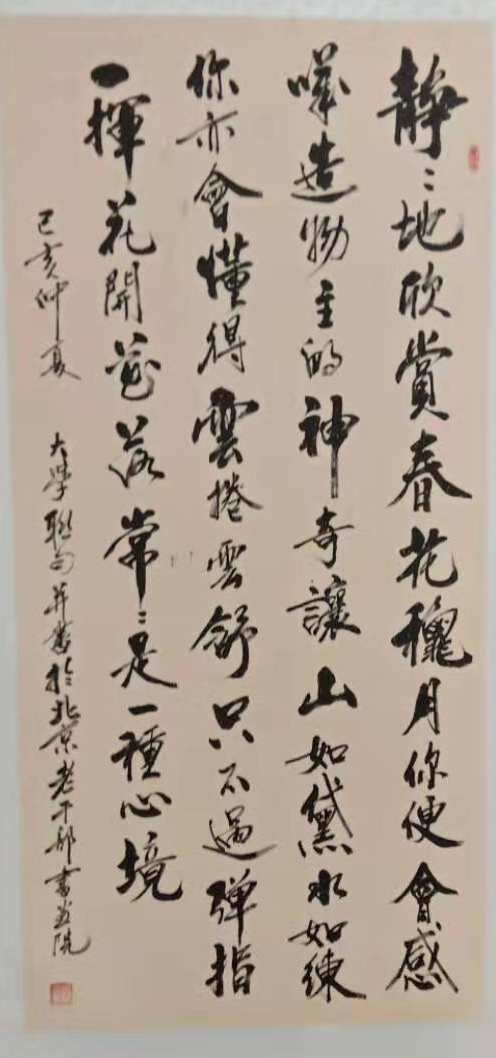 静〻地欣賞春花穐月你便會感
嘆造物主的神奇讓山如黛水如練
你亦會懂得雲捲雲舒只不過弹指
一揮花開花落常〻是一種心境
己亥仲夏 大學聯句并書於北京老干部書画院